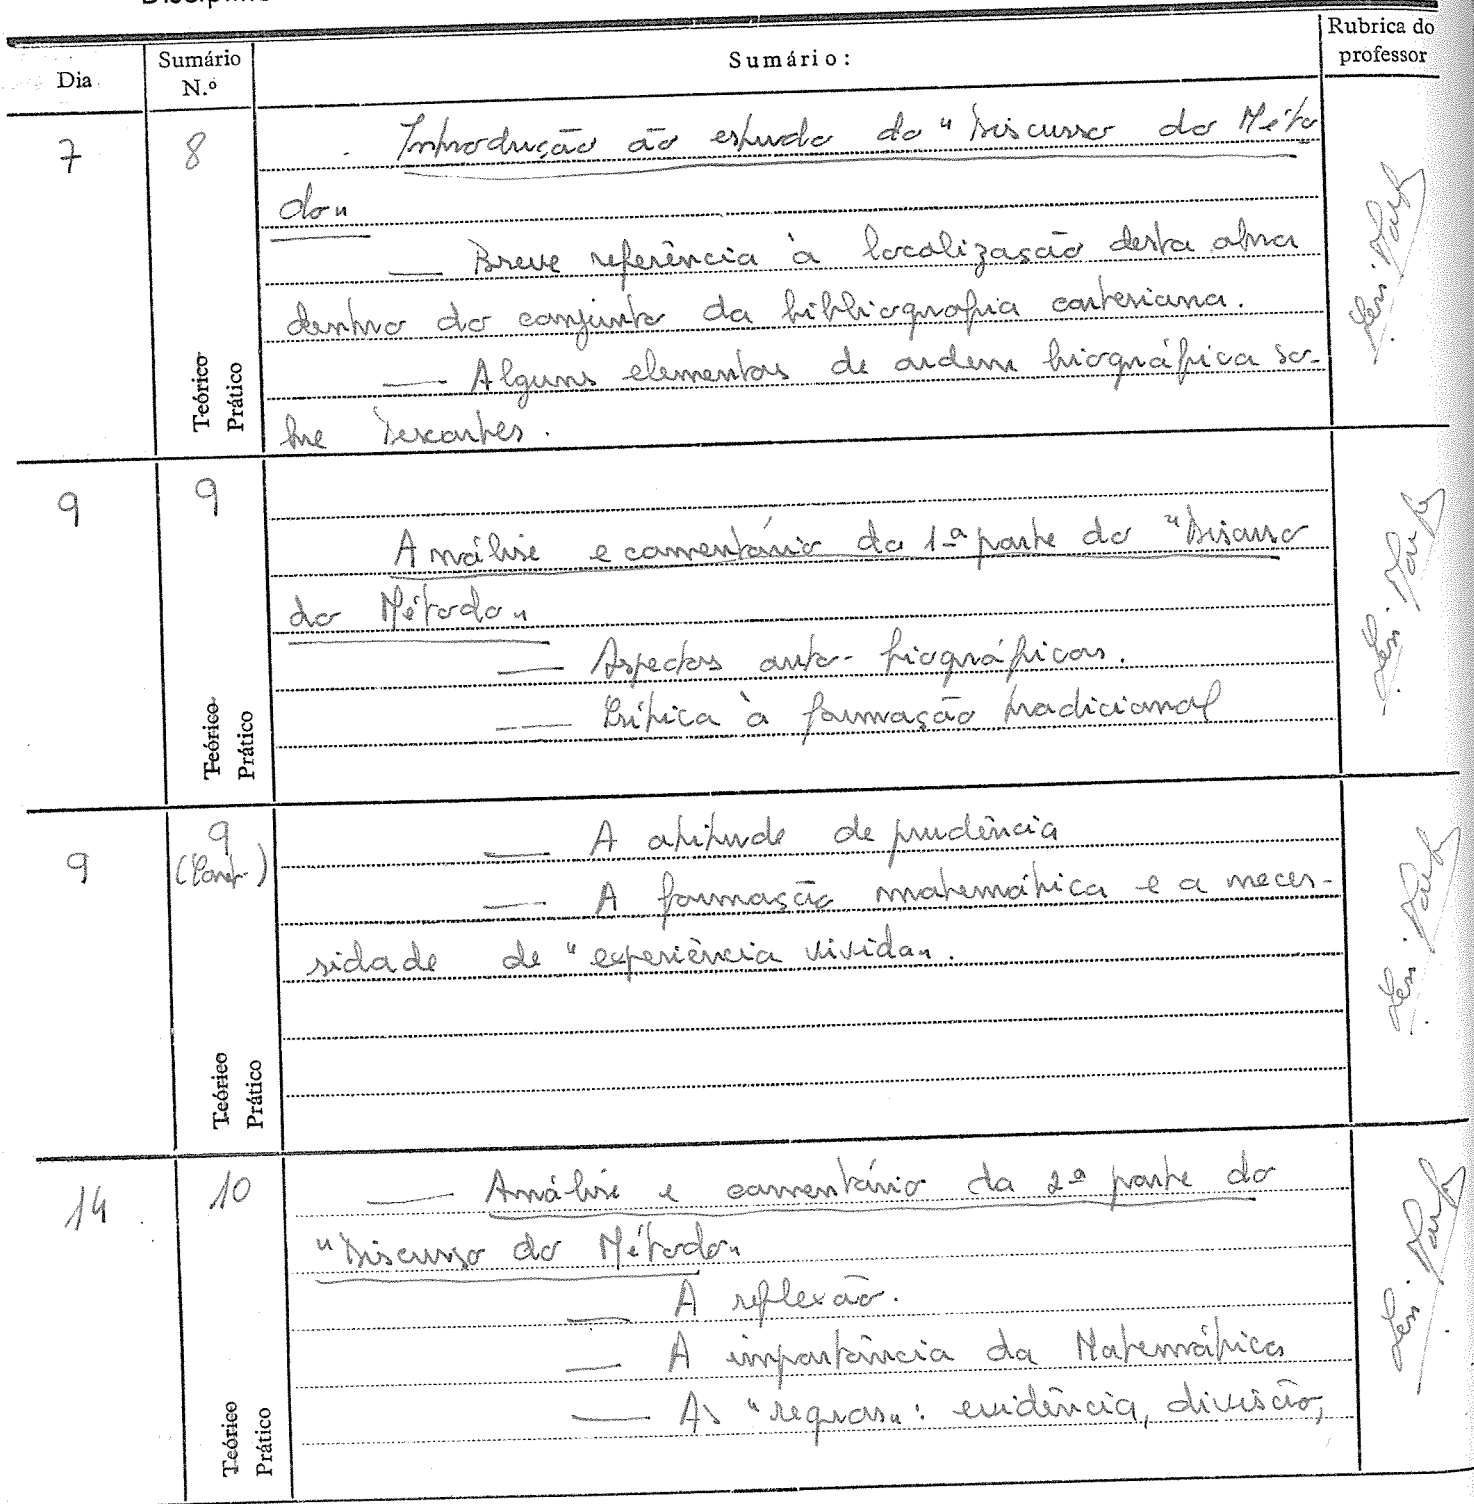 Dia
Sumário
N.º
Sumário:
Rubrica do
professor
7
8
Introdução ao estudo do "Discurso do Méto
do"
— Breve referência à localização desta obra
dentro do conjunto da bibliografia cartesiana.
— Alguns elementos de ordem biográfica so-
bre Descartes.
Teórico
Prático
9
9
Análise e comentário da 1ª parte do "Discurso
do Método"
— Aspectos auto-biográficos.
— Crítica à formação tradicional
Teórico
Prático
9
9
(Cont.)
— A atitude de prudência
— A formação matemática e a neces-
sidade de "experiência vivida".
Teórico
Prático
14
10
— Análise e comentário da 2ª parte do
"Discurso do Método"
— A reflexão.
— A importância da Matemática
— As "regras": evidência, divisão,
Teórico
Prático